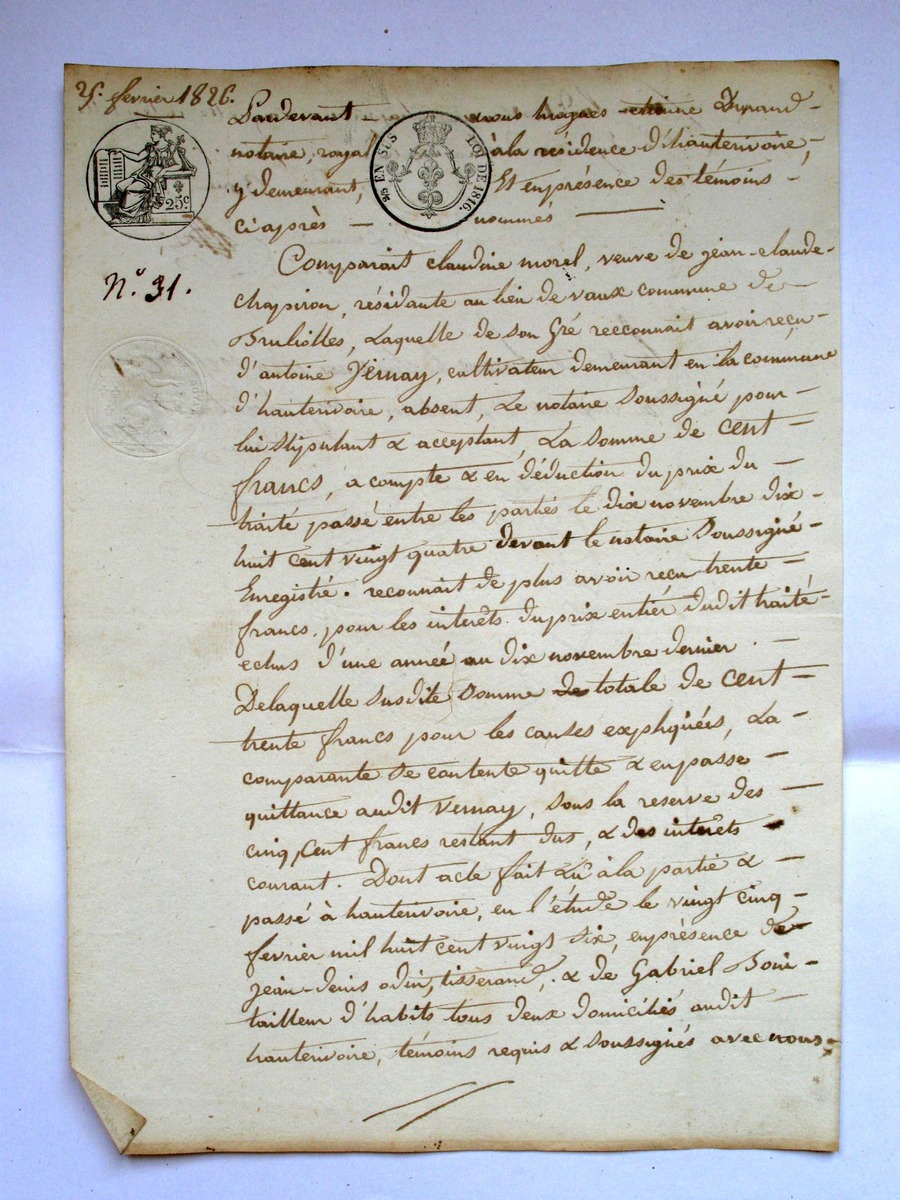 25. fevrier 1826.
Pardevant nous hugues etienne Durand
notaire, royal à la résidence d'hauterivoire,
y demeurant, Et en présence des témoins
ci après nommés
25 c.
2/5 EN SUS
LOI DE 1816.
N.° 31.
Comparait claudine morel, veuve de jean-claude
chapiron, résidante au lieu de vaux commune de
Brullolles, Laquelle de son Gré recconnait avoir reçu
d'antoine Vernay, cultivateur demeurant en la commune
d'hauterivoire, absent, Le notaire soussigné pour
lui stipulant & acceptant, La somme de cent
francs, à compte & en déduction du prix du
traité passé entre les parties le dix novembre dix
huit cent vingt quatre devant le notaire soussigné
Enregistré. reconnait de plus avoir recu trente
francs. pour les interets du prix entiér dudit traité
echus d'une année au dix novembre dernier.
De laquelle susdite somme totale de cent
trente francs pour les causes expliquées, La
comparante se contente quitte & en passe
quittance audit vernay, sous la reserve des
cinq, cent francs restant dus, & des interets
courant. Dont acte fait Lû à la partie &
passé à hauterivoire, en l'étude le vingt cinq
fevrier mil huit cent vingt six, en présence de
jean-denis odin, tisserand, & de Gabriel
tailleur d'habits tous deux domiciliés audit
hauterivoire, témoins requis & soussignés avec nous